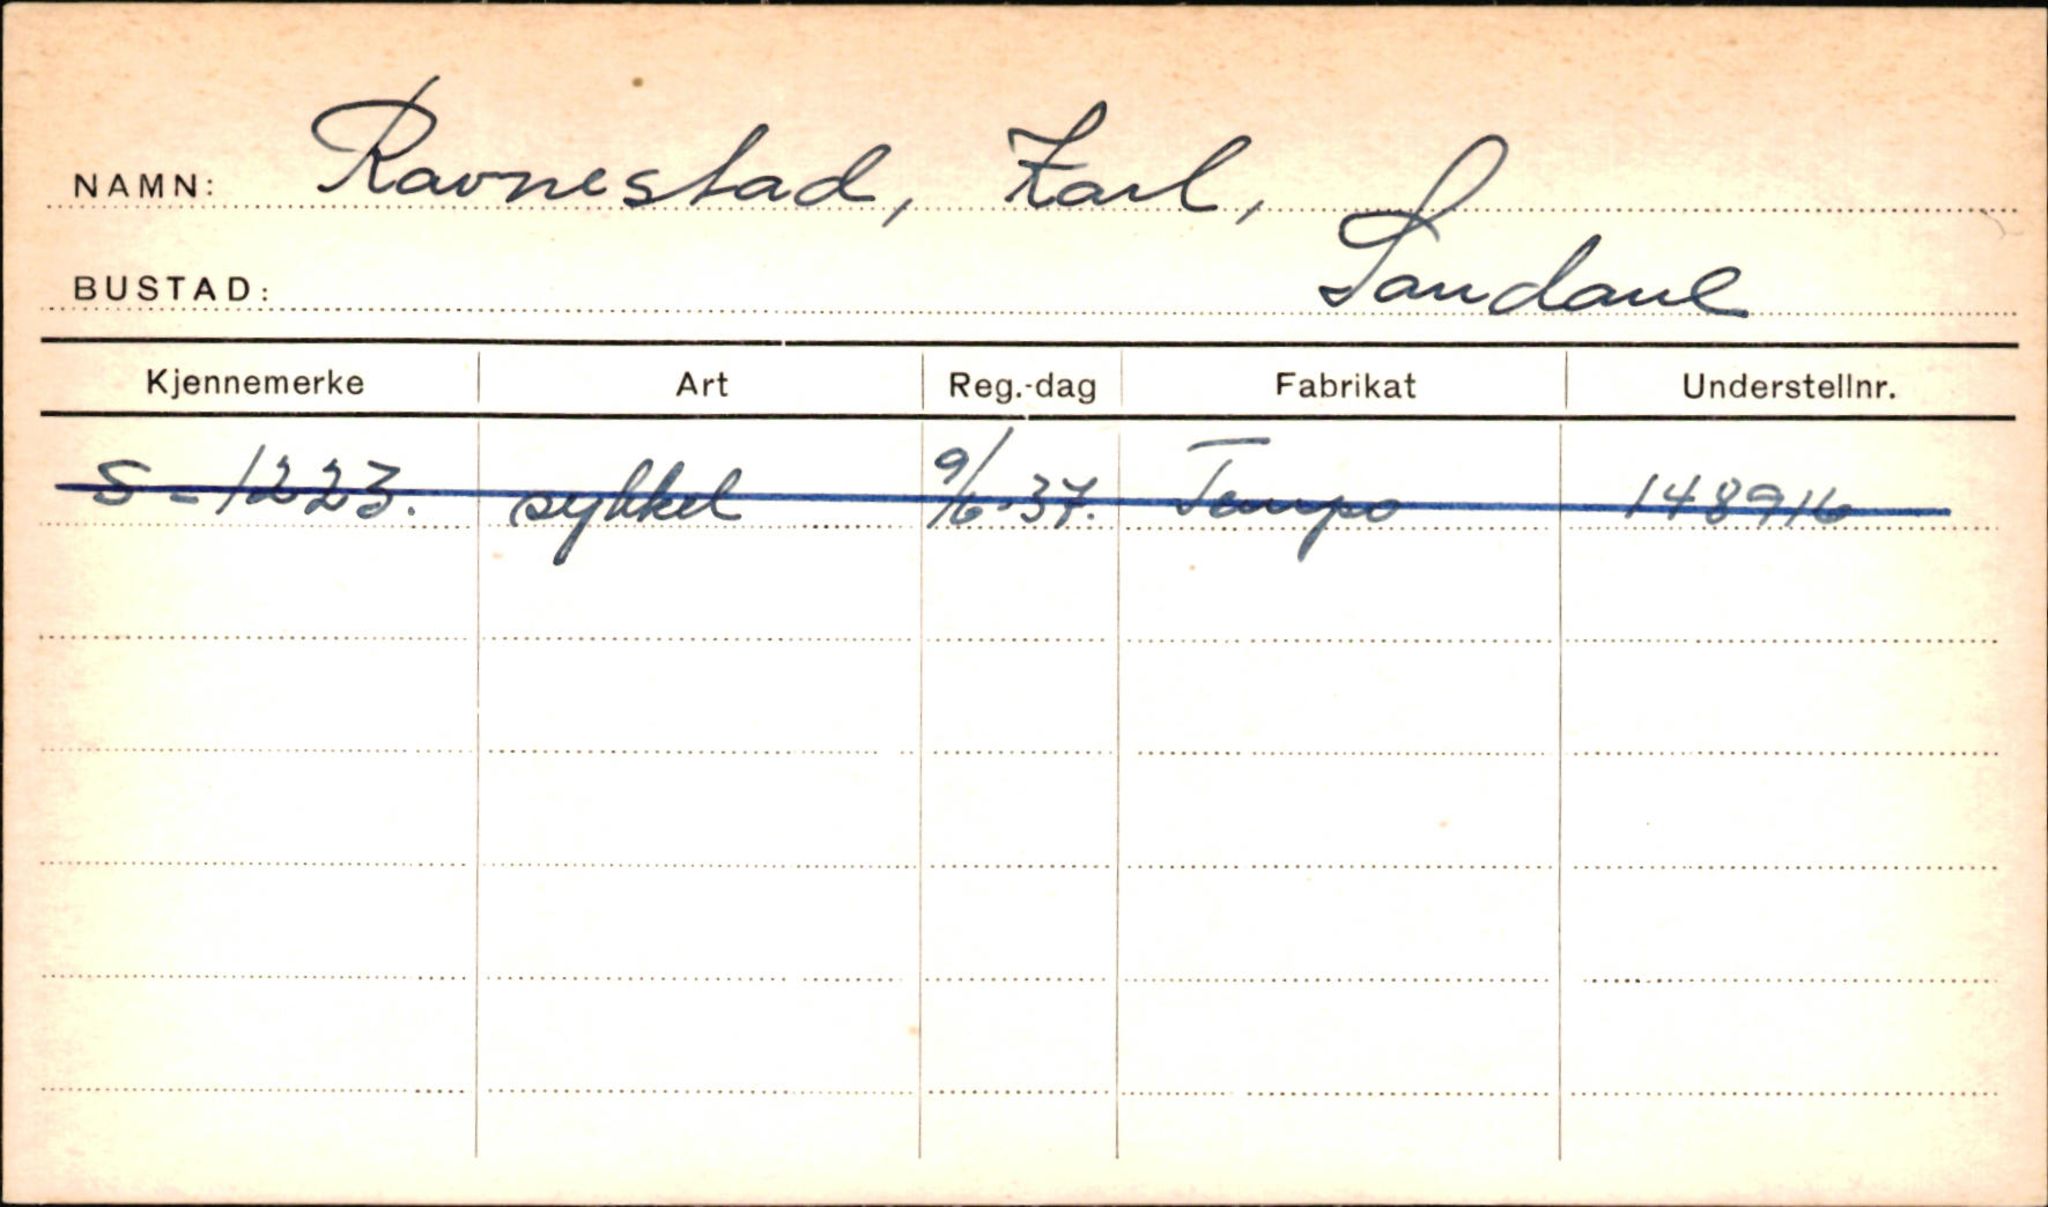 NAMN: Ravnestad, Karl,
BUSTAD: Sandane
Kjennemerke Art Reg.-dag Fabrikat Understellnr.
S-1223. sykkel 9/6-37. Tempo 148916